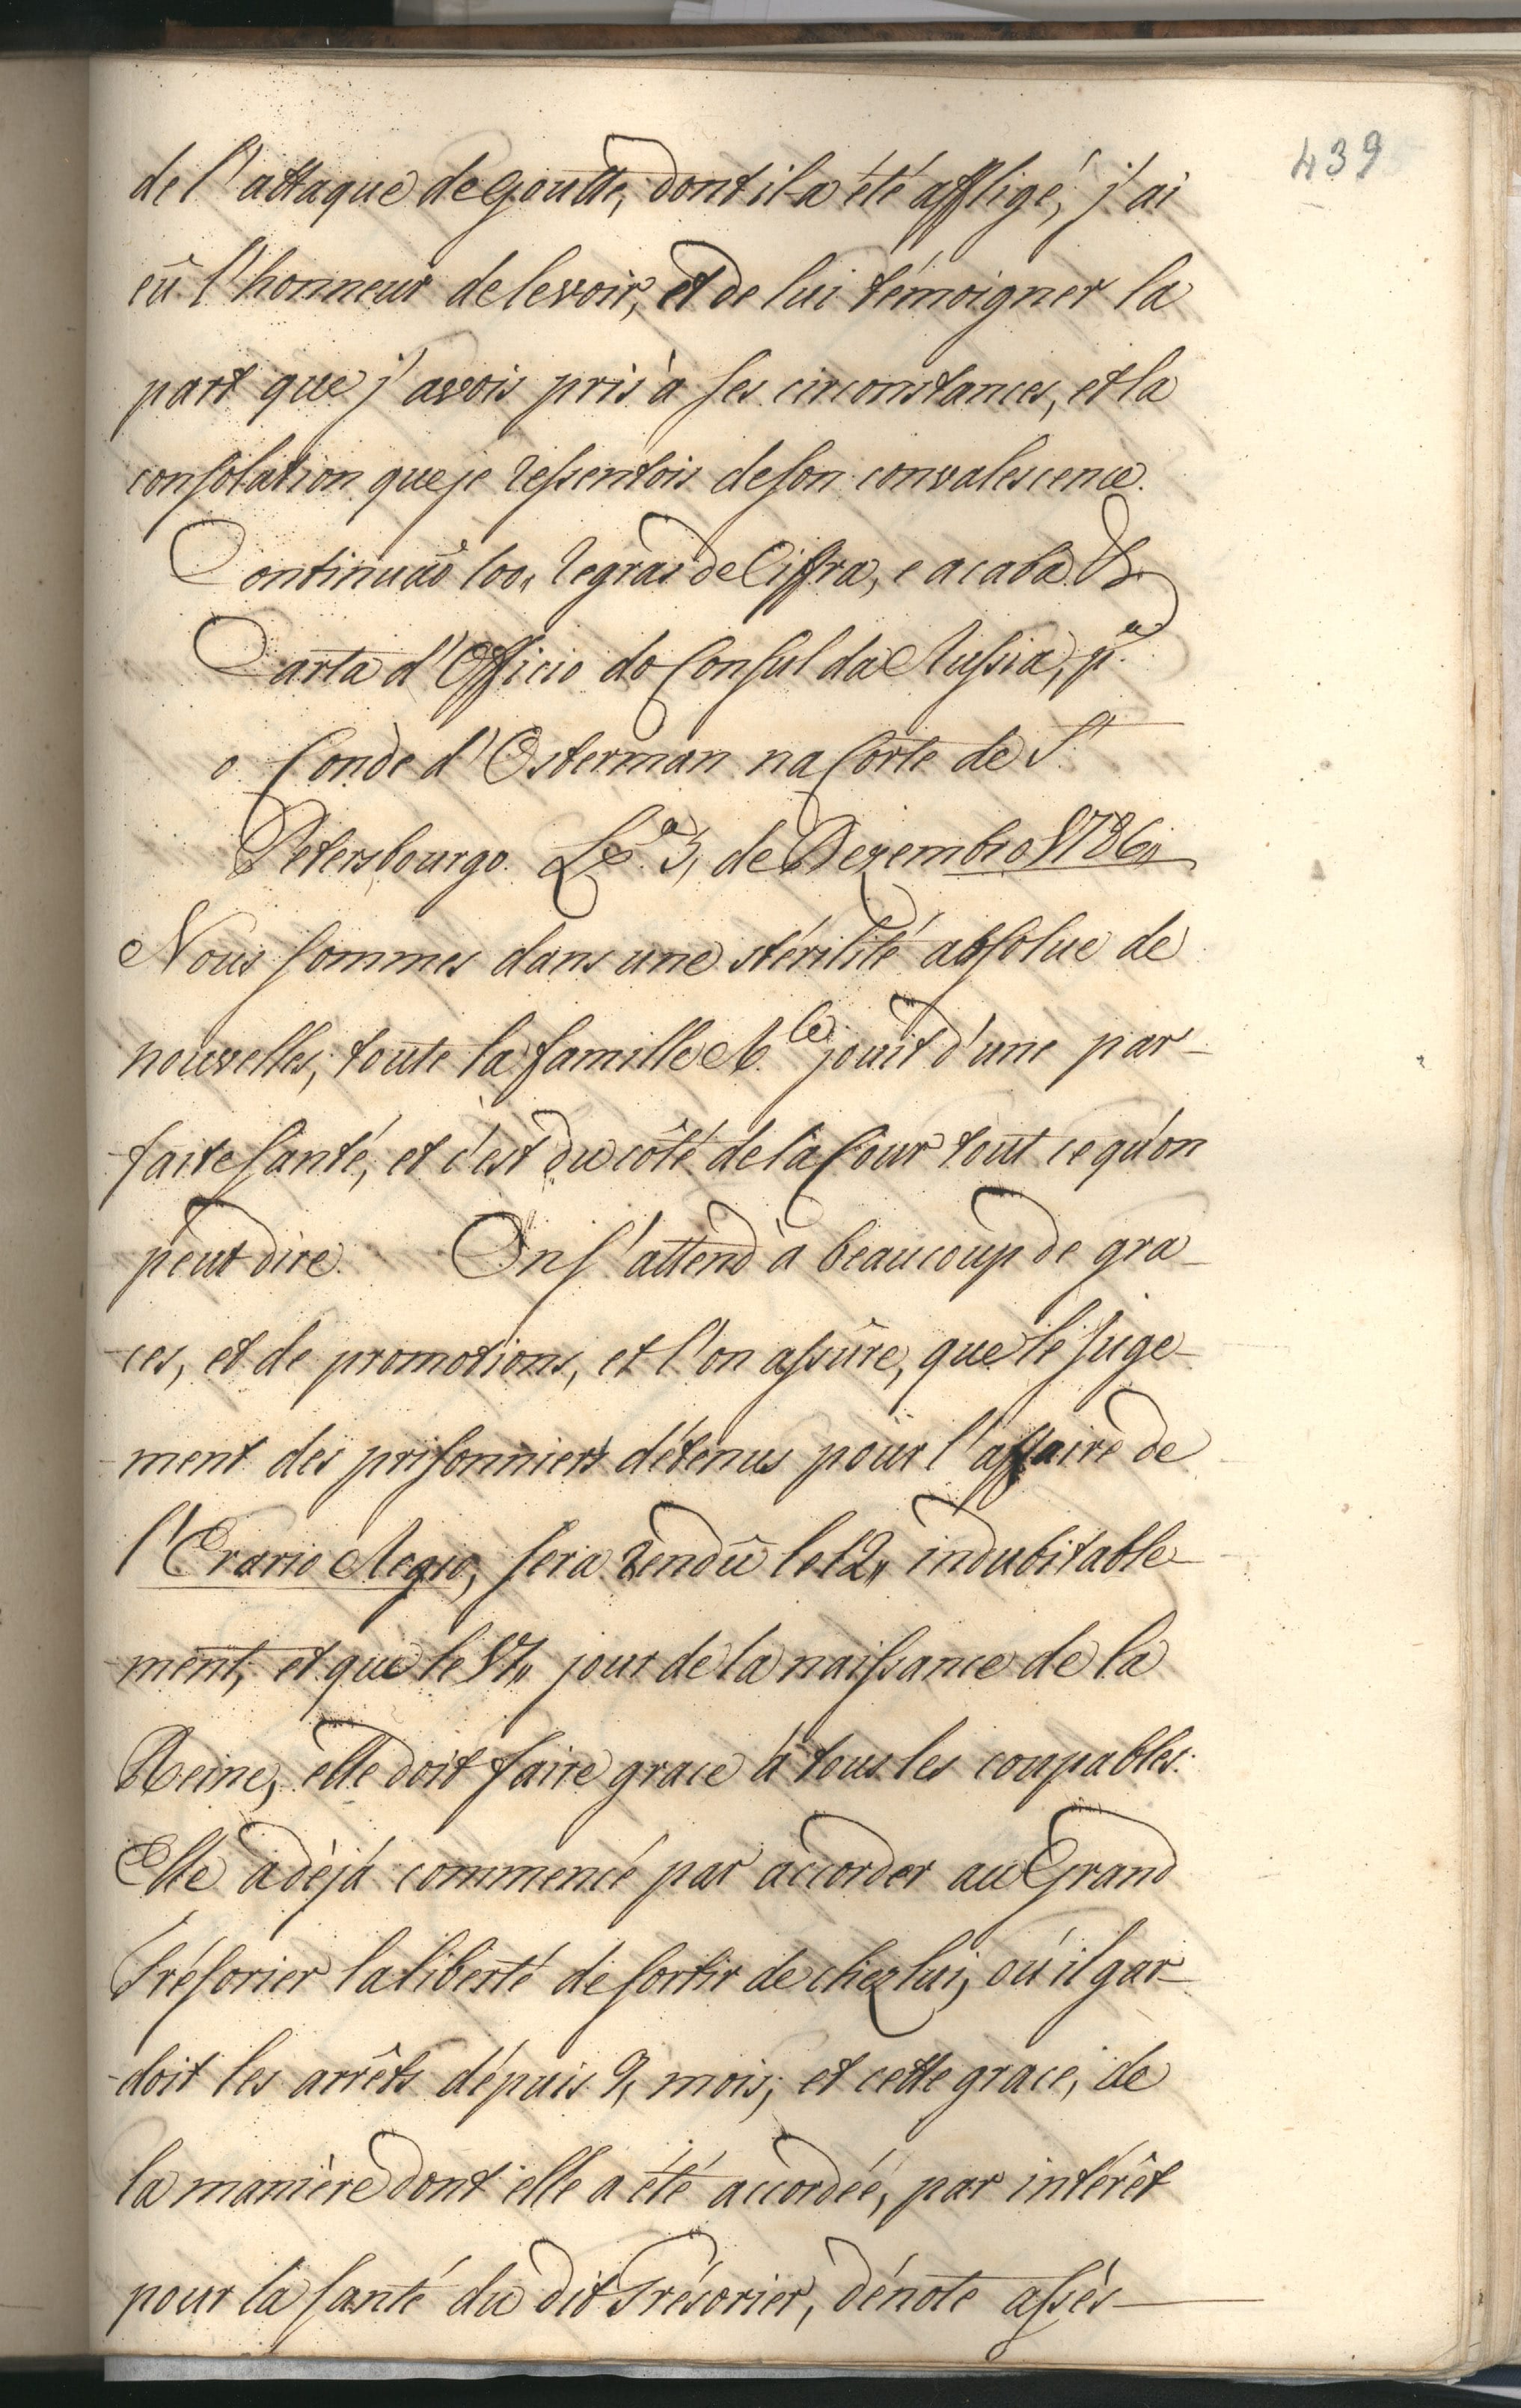 439
de l'attaque de goutte, dont il a été affligé, j'ai
eû l'honneur de le voir, et de lui témoigner la
part que j'avois pris à ses circonstances, et la
consolation que je ressentois de son convalescence.
Continuaõ 100,, regras de Ciffra, e acaba &.
Carta d'Officio do Consul da Russia, p.ª
o Conde d'Osterman na Corte de S.
Petersbourgo. Lx.ª 3, de Dezembro 1786,,
Nous sommes dans une stérilité absolue de
nouvelles; toute la famille R.le jouit d'une par-
-faite santé, et c'est du côté de la Cour tout ce qu'on
peut dire. On s'attend à beaucoup de gra-
-ces, et de promotions, et l'on assûre, que le juge-
-ment des prisonniers détenus pour l'affaire de
l'Erario Regio, sera rendû le 12,, indubitable-
-ment, et que le 17,, jour de la naissance de la
Reine, elle doit faire grace à tous les coupables.
Elle a déjà commencé par accorder au Grand
Trésorier la liberté de sortir de chez lui, où il gar-
-doit les arrêts dépuis 9, mois; et cette grace, de
la manière dont elle a été accordée, par intérêt
pour la santé du dit Trésorier, dénote assés